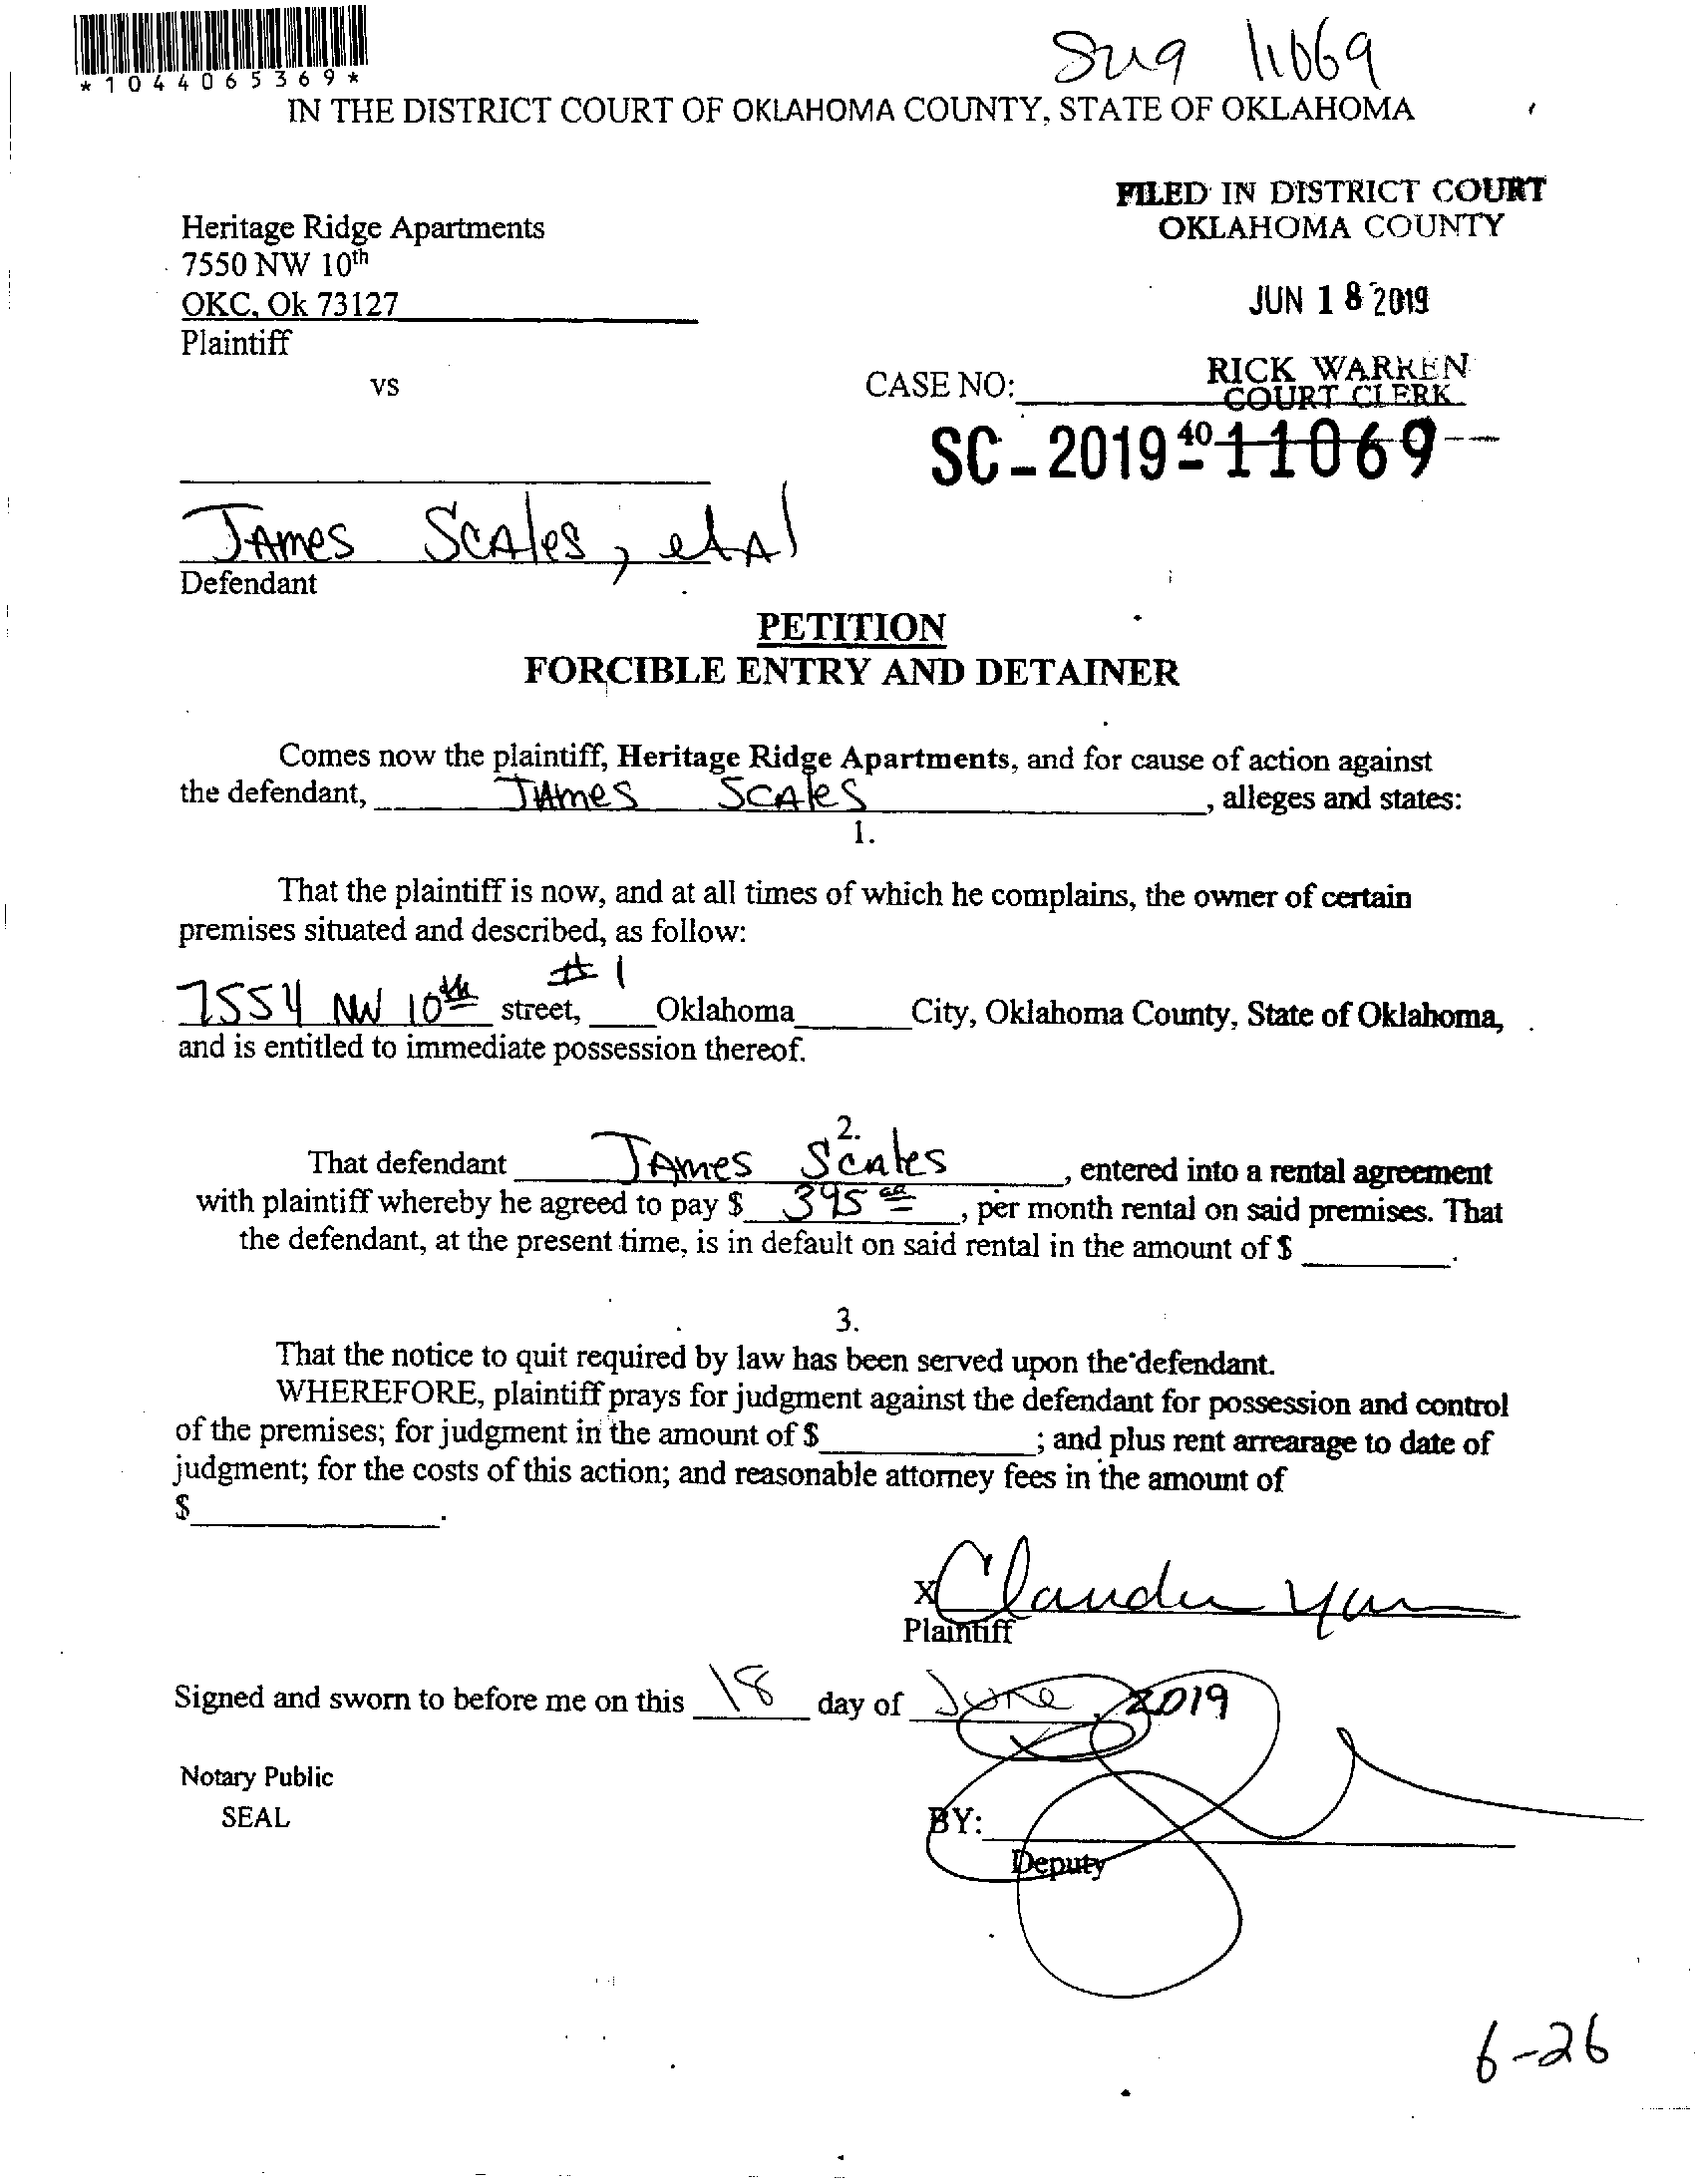 *1044065369*
11069
IN THE DISTRICT COURT OF OKLAHOMA COUNTY, STATE OF OKLAHOMA
FILED IN DISTRICT COURT
OKLAHOMA COUNTY
Heritage Ridge Apartments
7550 NW 10th
OKC, Ok 73127
JUN 18 2019
Plaintiff
RICK WARREN
COURT CLERK
vs
CASE NO:
40
SC - 2019 - 11069
JAmes ScAles, et Al
Defendant
PETITION
FORCIBLE ENTRY AND DETAINER
Comes now the plaintiff, Heritage Ridge Apartments, and for cause of action against
the defendant, JAmes SCAles, alleges and states:
1.
That the plaintiff is now, and at all times of which he complains, the owner of certain
premises situated and described, as follow:
#1
7554 NW 10th street, Oklahoma City, Oklahoma County, State of Oklahoma,
and is entitled to immediate possession thereof.
2.
That defendant JAmes Scales, entered into a rental agreement
with plaintiff whereby he agreed to pay $ 395, per month rental on said premises. That
the defendant, at the present time, is in default on said rental in the amount of $ .
3.
That the notice to quit required by law has been served upon the defendant.
WHEREFORE, plaintiff prays for judgment against the defendant for possession and control
of the premises; for judgment in the amount of $ ; and plus rent arrearage to date of
judgment; for the costs of this action; and reasonable attorney fees in the amount of
$ .
X
Plaintiff
Signed and sworn to before me on this 18 day of June, 2019
Notary Public
SEAL
BY:
Deputy
6-26